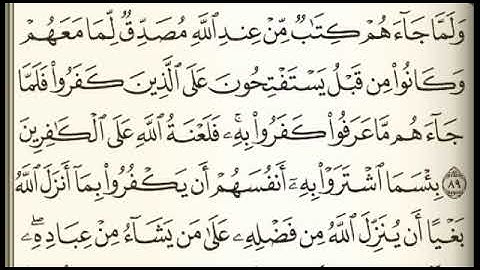 وَلَمَّا جَآءَهُمْ كِتَٰبٌ مِّنْ عِندِ ٱللَّهِ مُصَدِّقٌ لِّمَا مَعَهُمْ
وَكَانُوا۟ مِن قَبْلُ يَسْتَفْتِحُونَ عَلَى ٱلَّذِينَ كَفَرُوا۟ فَلَمَّا
جَآءَهُم مَّا عَرَفُوا۟ كَفَرُوا۟ بِهِۦۚ فَلَعْنَةُ ٱللَّهِ عَلَى ٱلْكَٰفِرِينَ
٨٩ بِئْسَمَا ٱشْتَرَوْا۟ بِهِۦٓ أَنفُسَهُمْ أَن يَكْفُرُوا۟ بِمَآ أَنزَلَ ٱللَّهُ
بَغْيًا أَن يُنَزِّلَ ٱللَّهُ مِن فَضْلِهِۦ عَلَىٰ مَن يَشَآءُ مِنْ عِبَادِهِۦۖ